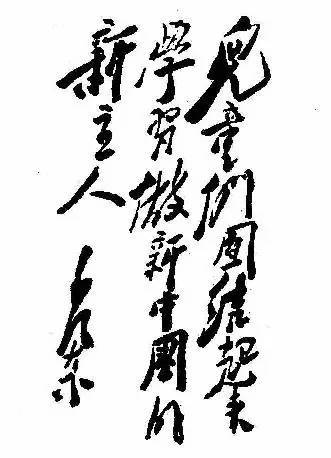 兒童们團結起来
學習做新中國的
新主人
毛泽东